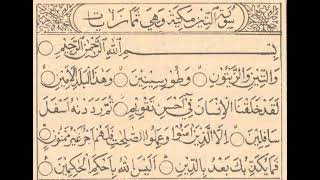 سورة التين مكية وهي ثمان آيات
بسم الله الرحمن الرحيم
والتين والزيتون وطور سينين وهذا البلد الامين
لقد خلقنا الانسان في احسن تقويم ثم رددنه اسفل
سافلين الا الذين امنوا وعملوا الصلحت فلهم اجر غير ممنون
فما يكذبك بعد بالدين اليس الله باحكم الحكمين